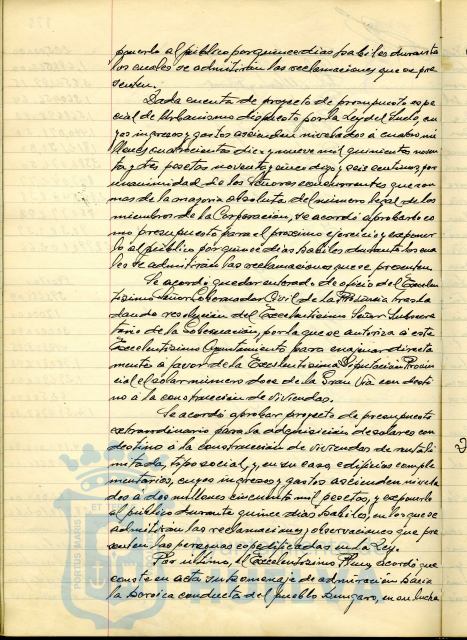 ponerlo al público por quince días hábiles durante
los cuales se admitirán las reclamaciones que se pre
senten.
Dada cuenta de proyecto de presupuesto espe
cial de Urbanismo dispuesto por la Ley del Suelo, cu
yos ingresos y gastos ascienden nivelados á cuatro mi
llones cuatrocientas diez y nueve mil quinientas noven
ta y tres pesetas noventa y cinco digo y seis centimos, por
unanimidad de los Señores concurrentes que son
mas de la mayoria absoluta del número legal de los
miembros de la Corporación, se acordó aprobarlo co
mo presupuesto para el proximo ejercicio y exponer
lo al público por quince días hábiles durante los cua
les se admitirán las reclamaciones que se presenten.
Se acordó quedar enterado de oficio del Excelen
tisimo Señor Gobernador Civil de la Provincia trasla
dando resolución del Excelentisimo Señor Subsecre
tario de la Gobernación, por la que se autoriza á este
Excelentisimo Ayuntamiento para enajenar directa
mente á favor de la Excelentisima Diputación Provin
cial el solar número doce de la Gran Via con desti
no á la construcción de viviendas.
Se acordó aprobar proyecto de presupuesto
extraordinario para la adquisición de solares con
destino á la construcción de viviendas de renta li
mitada, tipo social, y en su caso edificios comple
mentarios, cuyos ingresos y gastos ascienden nivela
dos á dos millones cincuenta mil pesetas, y exponerlo
al público durante quince días hábiles, en los que se
admitirán las reclamaciones y observaciones que pre
senten las personas especificadas en la Ley.
Por último, el Excelentisimo Pleno acordó que
conste en acta su homenaje de admiración hacia
la heroica conducta del pueblo hungaro, en su lucha